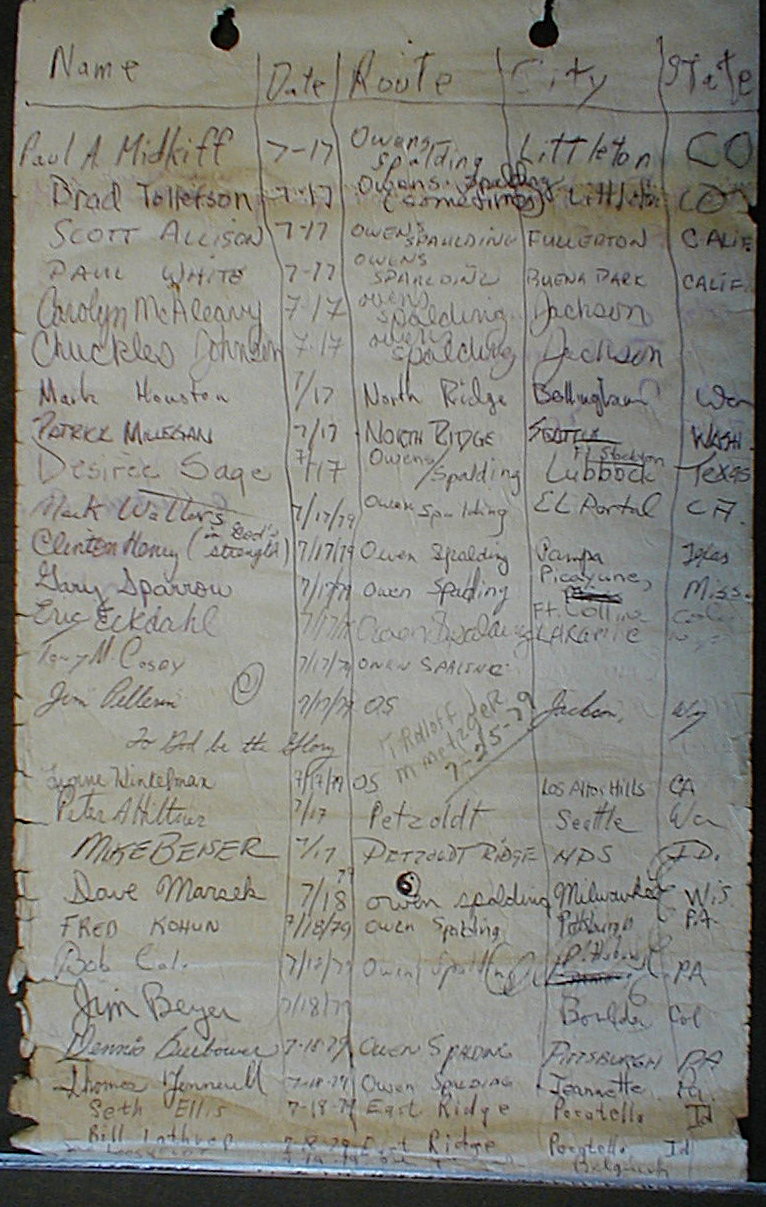 Name Date Route City State
Paul A Midkiff 7-17 Owens Spalding Littleton CO
Brad Tollefson 7-17 Owens Spalding (sometimes) Littleton CO
SCOTT ALLISON 7-17 OWENS SPAULDING FULLERTON CALIF.
PAUL WHITE 7-17 OWENS SPARLDING BUENA PARK CALIF.
Carolyn McAleavy 7-17 owens spalding Jackson
Chuckles Johnson 7-17 owens spalding Jackson
Mark Houston 7/17 North Ridge Bellingham Wa
PATRICK MILLEGAN 7/17 NORTH RIDGE SEATTLE WASH.
Desiree Sage 7/17 Owens/Spalding Lubbock Ft. Stockton Texas
Mark Watters 7/17/79 Owen Spalding EL Portal CA.
Clinton Henry (in God's strength) 7/17/79 Owen Spalding Pampa Texas
Gary Sparrow 7/17/79 Owen Spalding Picayune, Miss.
Eric Eckdahl 7/17/79 Owen Spalding Ft. Collins LARAMIE Colo
Tony M. Cosey 7/17/79 OWEN SPALING
Jim 7/17/79 OS Jackson, Wy
To God be the Glory
T Rolloff
M Metzger
7-25-79
Winkelman 7/17/79 OS Los Altos Hills CA
Peter A 7/17 Petzoldt Seattle Wa
MIKE BEISER 7/17 PETZOLDT RIDGE MPS ID.
Dave Marsek 7/18 79 owen spalding Milwaukee Wis
FRED KOHUN 7/18/79 Owen Spalding Pittsburgh PA
Bob 7/18/79 Owen Spalding PA
Jim Beyer 7/18/79 Boulder Col
Dennis Burbower 7-18-79 OWEN SPALDING PITTSBURGH PA
Thomas 7-18-79 Owen Spalding Jeannette Pa.
Seth Ellis 7-18-79 East Ridge Pocatello Id
Bill Lathrop 7-18-79 East Ridge Pocatello Id